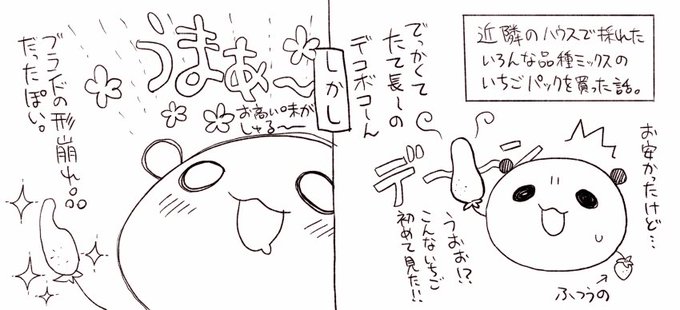 近隣のハウスで採れた
いろんな品種ミックスの
いちごパックを買った話。
お安かったけど…
でっかくて
たて長〜の
デコボコ〜ん
デーン
うおお!?
こんないちご
初めて見た!!
ふつうの
しかし
うまぁ〜
お高い味が
しゅる〜
ブランドの形崩れ
だったぽい。